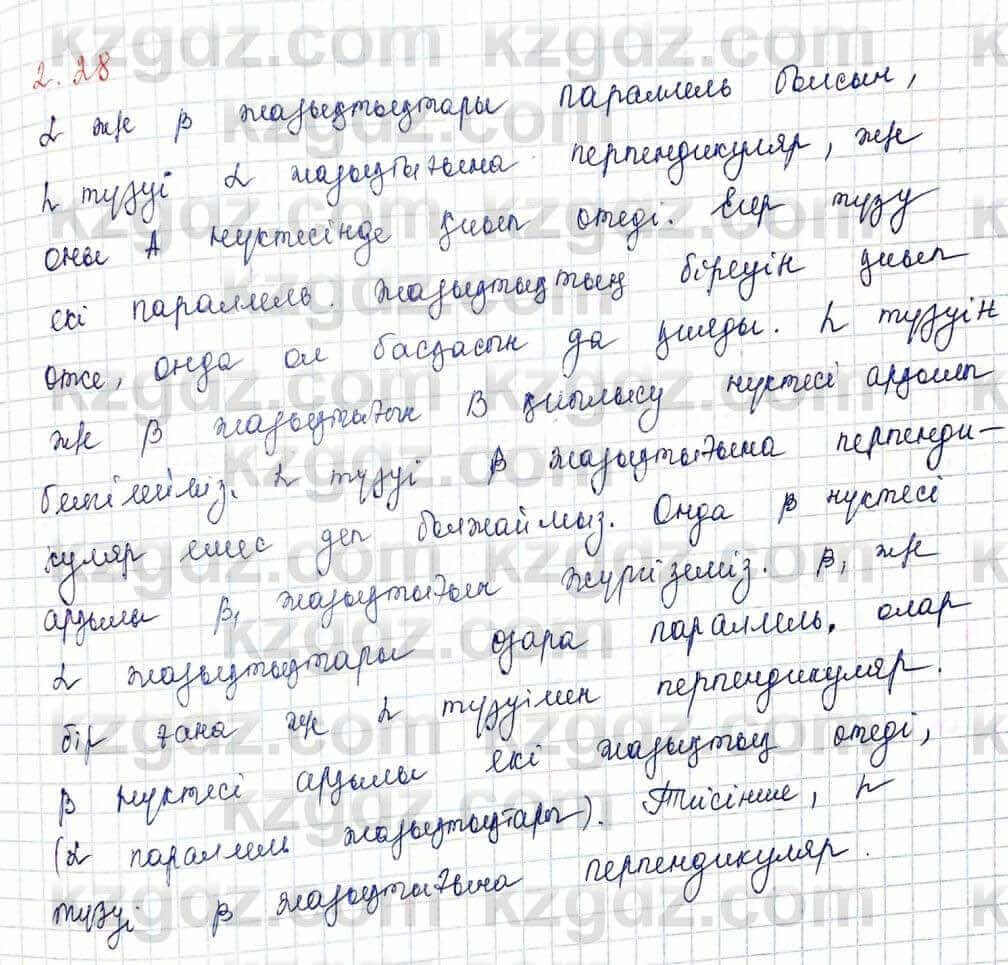 2.28
α ж/е β жазықтықтары параллель болсын,
h түзуі α жазықтығына перпендикуляр, ж/е
оны A нүктесінде қиып өтеді. Егер түзу
екі параллель жазықтықтың біреуін қиып
өтсе, онда ол басқасын да қияды. h түзуін
ж/е β жазықтығын B қиылысу нүктесі арқылы
белгілейміз. h түзуі β жазықтығына перпенди-
куляр емес деп болжаймыз. Онда β нүктесі
арқылы β₁ жазықтығын жүргіземіз. β₁ ж/е
α жазықтықтары өзара параллель. олар
бір ғана ж/е h түзуімен перпендикуляр.
β нүктесі арқылы екі жазықтық өтеді,
(α параллель жазықтықтары). Тиісінше, h
түзуі β жазықтығына перпендикуляр.
kzgdz.com